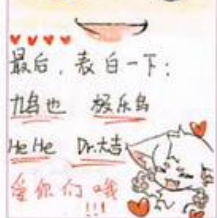 最后，表白一下：
鸠也 极乐鸟
HeHe Dr.大吉
爱你们哦
!!!